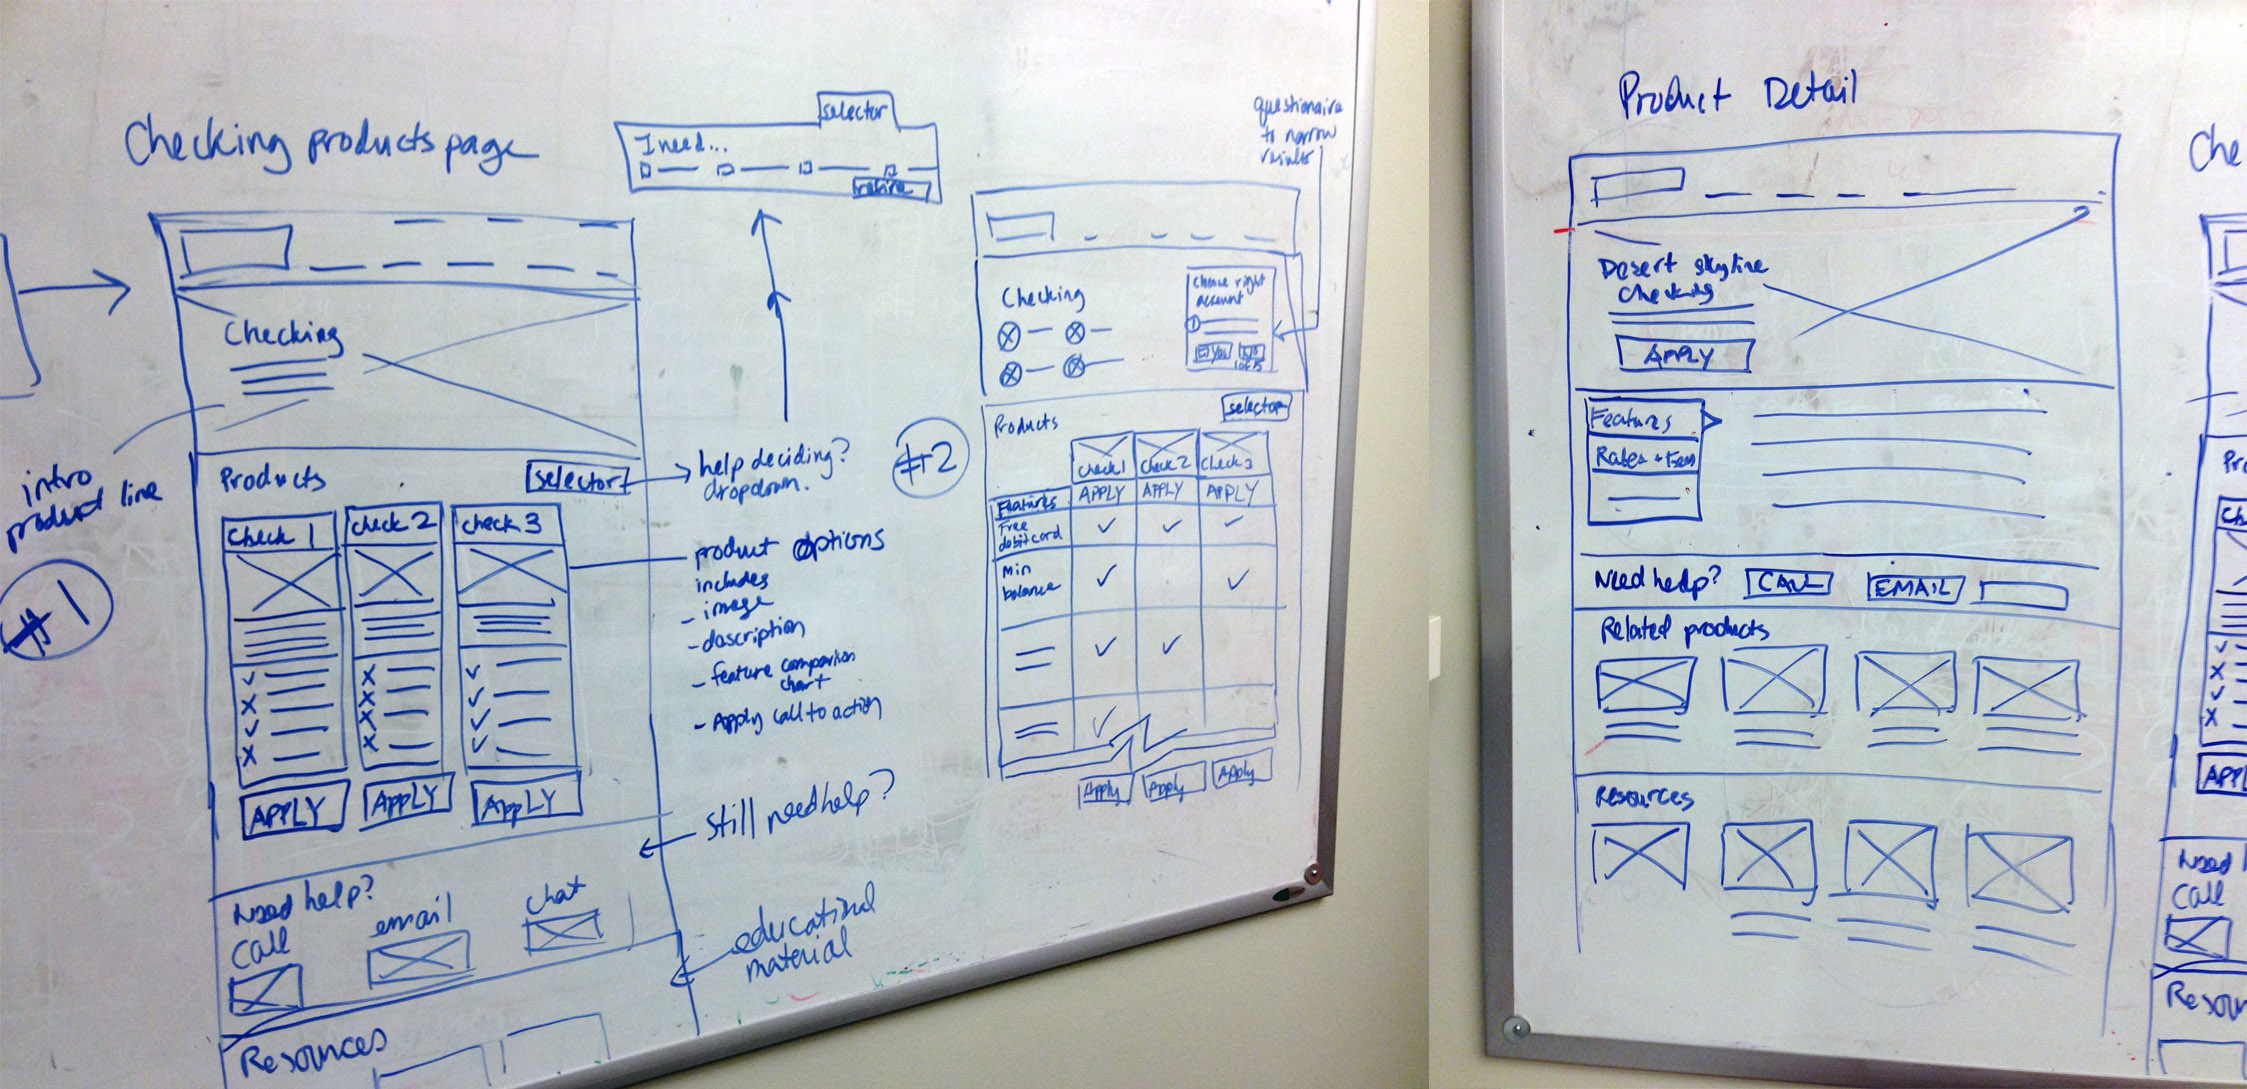 Checking products page
selector
I need...
refine
Checking
intro
product line
#1
Products
selector
help deciding?
dropdown.
check 1
check 2
check 3
product options
includes
- image
- description
- feature comparison
chart
- Apply call to action
APPLY
APPLY
APPLY
still need help?
Need help?
call
email
chat
educational
material
Resources
questionaire
to narrow
results
Checking
choose right
account
1
Yes
No
1 of 5
#2
Products
selector
check 1
check 2
check 3
Features
APPLY
APPLY
APPLY
Free
debit card
Min
balance
Apply
Apply
Apply
Product Detail
Desert skyline
checking
APPLY
Features
Rates + Fees
Need help?
CALL
EMAIL
Related products
Resources
Che
Pro
Ch
APPL
Need h
call
Resour